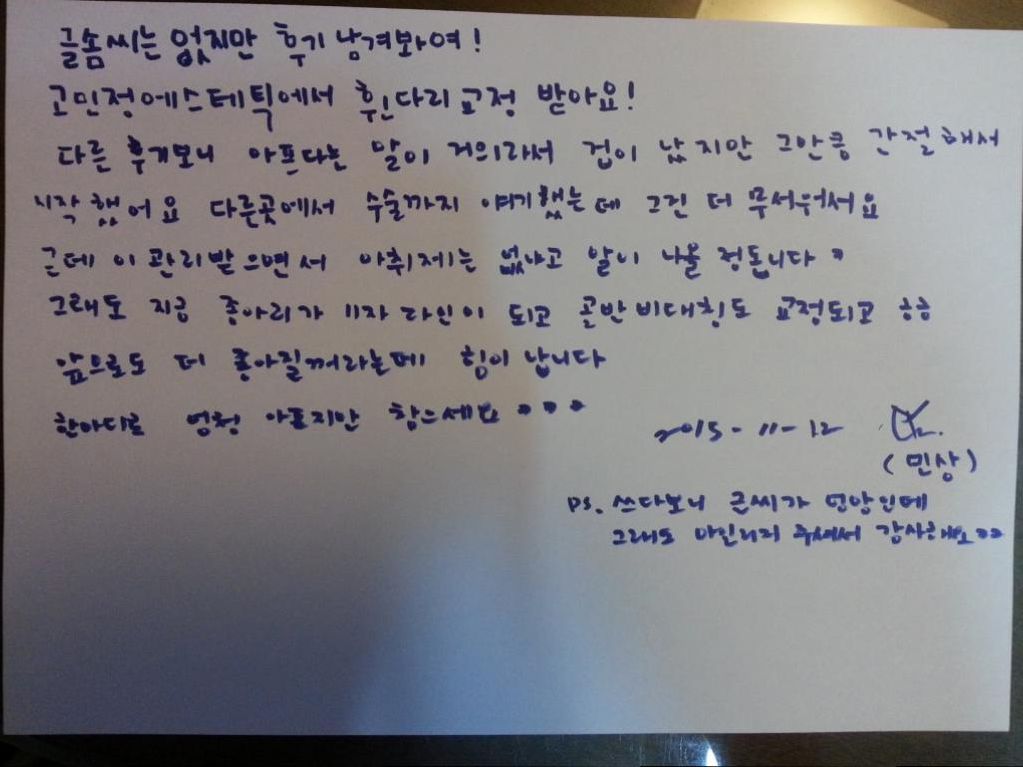 글솜씨는 없지만 후기 남겨봐여!
고민정에스테틱에서 휜다리교정 받아요!
다른 후기보니 아프다는 말이 거의라서 겁이 났지만 그만큼 간절해서
시작했어요 다른곳에서 수술까지 얘기했는데 그건 더 무서워서요
근데 이 관리받으면서 마취제는 없냐고 말이 나올 정돕니다
그래도 지금 종아리가 11자 라인이 되고 골반비대칭도 교정되고 ㅎㅎ
앞으로도 더 좋아질꺼라는데 힘이 납니다
한마디로 엄청 아프지만 참으세요
2015-11-12
(민상)
PS. 쓰다보니 글씨가 엉망인데
그래도 마인리지 주셔서 감사해요